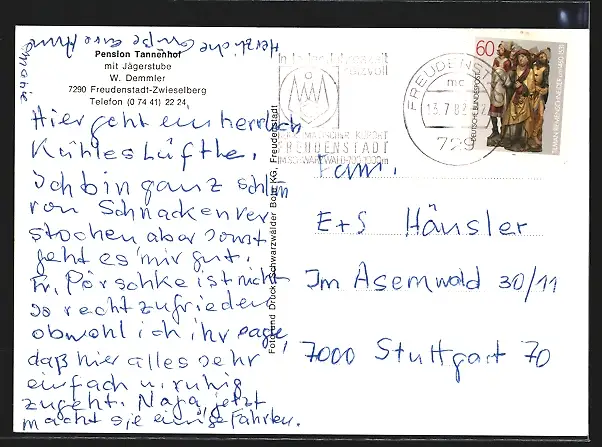 Pension Tannenhof
mit Jägerstube
W. Demmler
7290 Freudenstadt-Zwieselberg
Telefon (0 74 41) 22 24
Hier geht ein herrlich
Kühles Lüfthe.
Ich bin ganz schön
von Schnacken ver
stochen aber sonst
geht es mir gut.
Fr. Pörschke ist nicht
so recht zufrieden
obwohl ich ihr sage,
daß hier alles sehr
einfach u. ruhig
zugeht. Naja, jetzt
macht sie einige Fahrten.
Herzliche Grüße Eure
Foto und Druck: Schwarzwälder Bote KG, Freudenstadt
heilklimatischer Kurort
FREUDENSTADT
IM SCHWARZWALD
FREUDENST
mc
729
60
DEUTSCHE BUNDESPOST
Fam.
E+S Hänsler
Im Asemwald 30/11
7000 Stuttgart 70